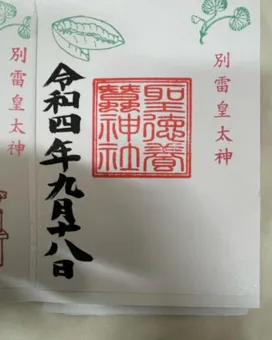 別雷皇太神
聖德養
蠶神社
令和四年九月十八日
別雷皇太神